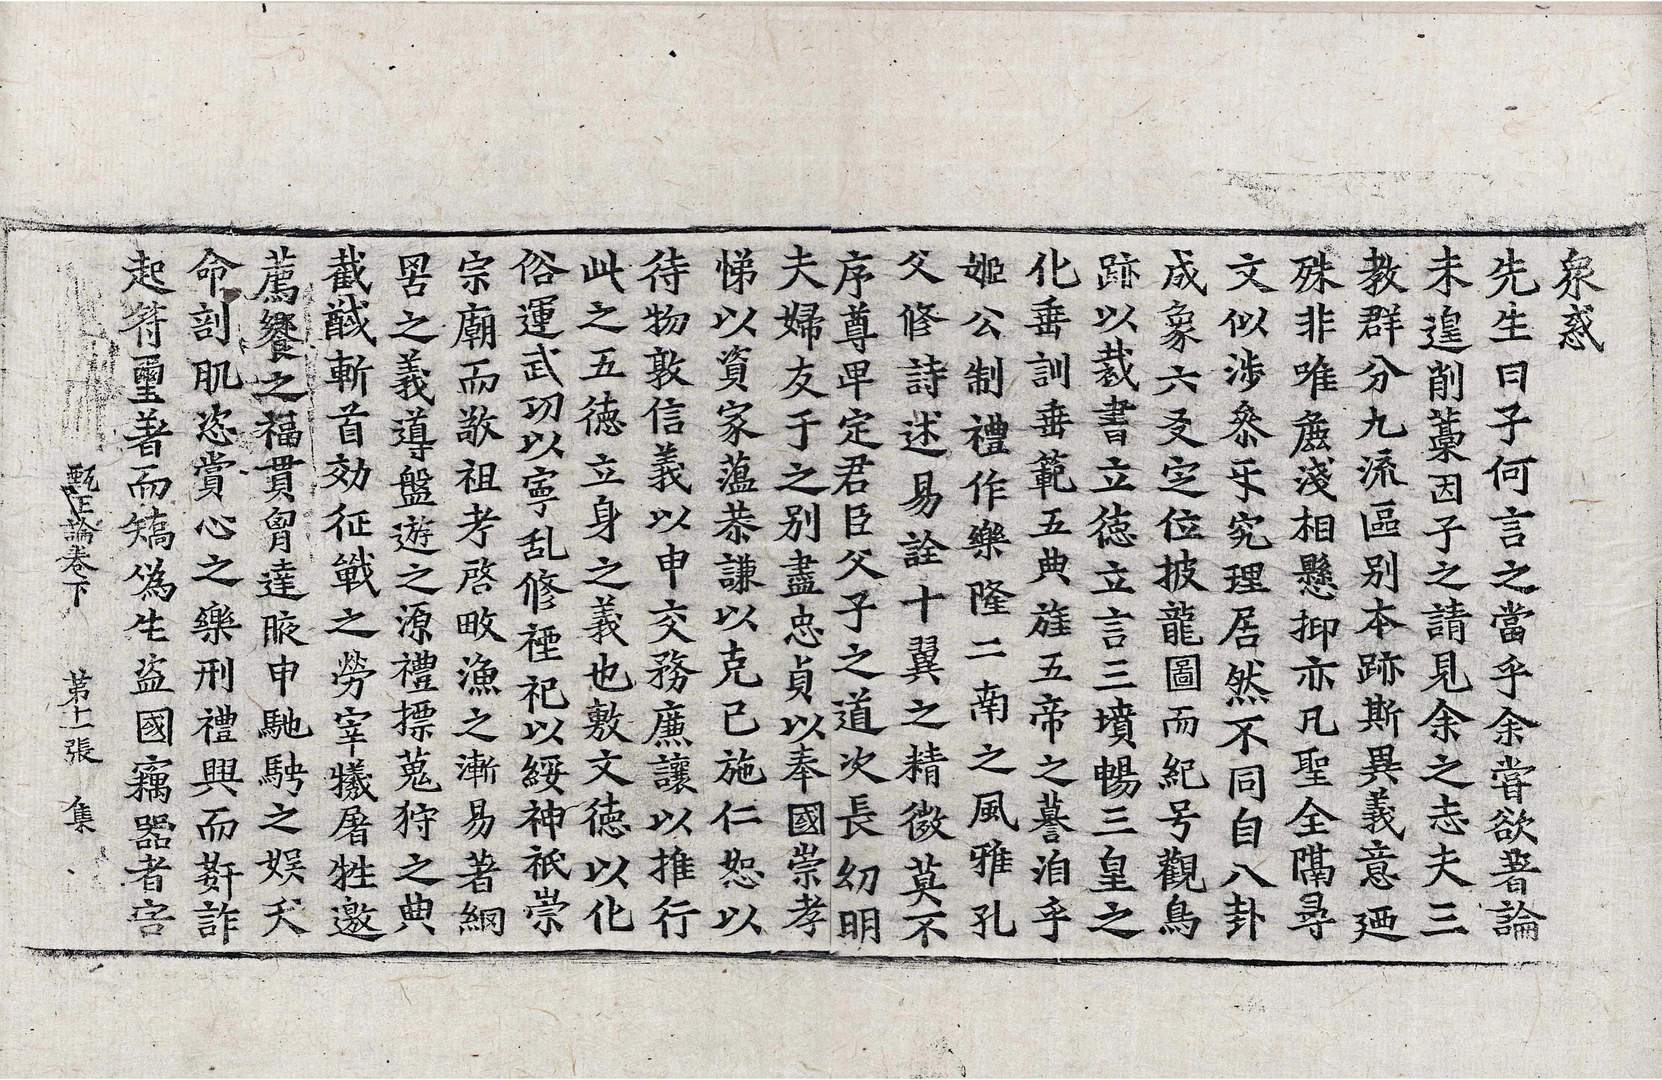 衆惑
先生曰子何言之當乎余嘗欲著論
未遑削藁因子之請見余之志夫三
教群分九流區別本跡斯異義意廼
殊非唯麁淺相懸抑亦凡聖全隔尋
文似涉叅乎究理居然不同自八卦
成象六爻定位披龍圖而紀号觀鳥
跡以裁書立德立言三墳暢三皇之
化垂訓垂範五典旌五帝之謩洎乎
姬公制禮作樂隆二南之風雅孔
父修詩述易詮十翼之精微莫不
序尊卑定君臣父子之道次長幼明
夫婦友于之別盡忠貞以奉國崇孝
悌以資家薀恭謙以克己施仁恕以
待物敦信義以申交務廉讓以推行
此之五德立身之義也敷文德以化
俗運武功以寧乱修禋祀以綏神祇崇
宗廟而敬祖考啓畋漁之漸易著網
罟之義導盤遊之源禮摽蒐狩之典
截馘斬首効征戰之勞宰犧屠牲邀
薦饗之福貫胷達腋申馳騁之娛夭
命剖肌恣賞心之樂刑禮興而姧詐
起符璽著而矯僞生盜國竊器者害
甄正論卷下 第十一張 集